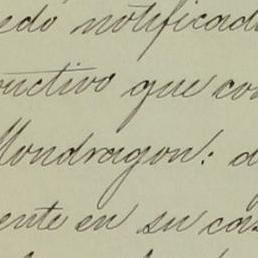 edo notificado
ructivo que con
Mondragon: d
ente en su cas